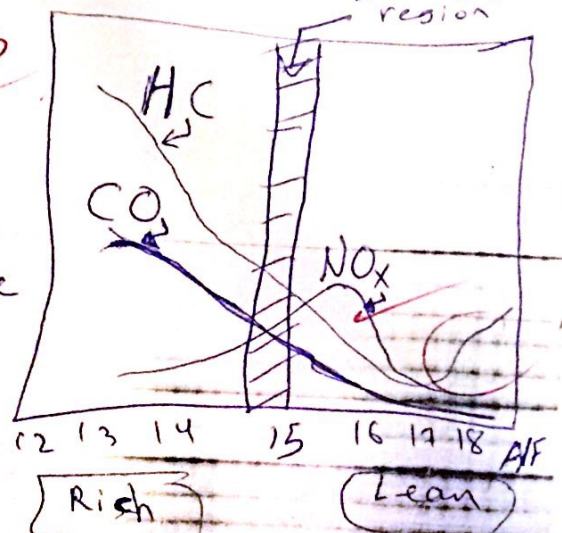 region
HC
CO
NOx
12 13 14 15 16 17 18 A/F
Rich
Lean